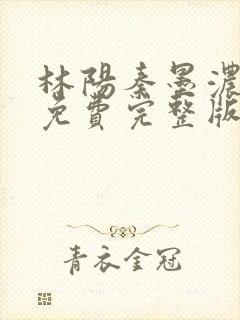 林陽秦墨濃
免費完整版
青衣金冠